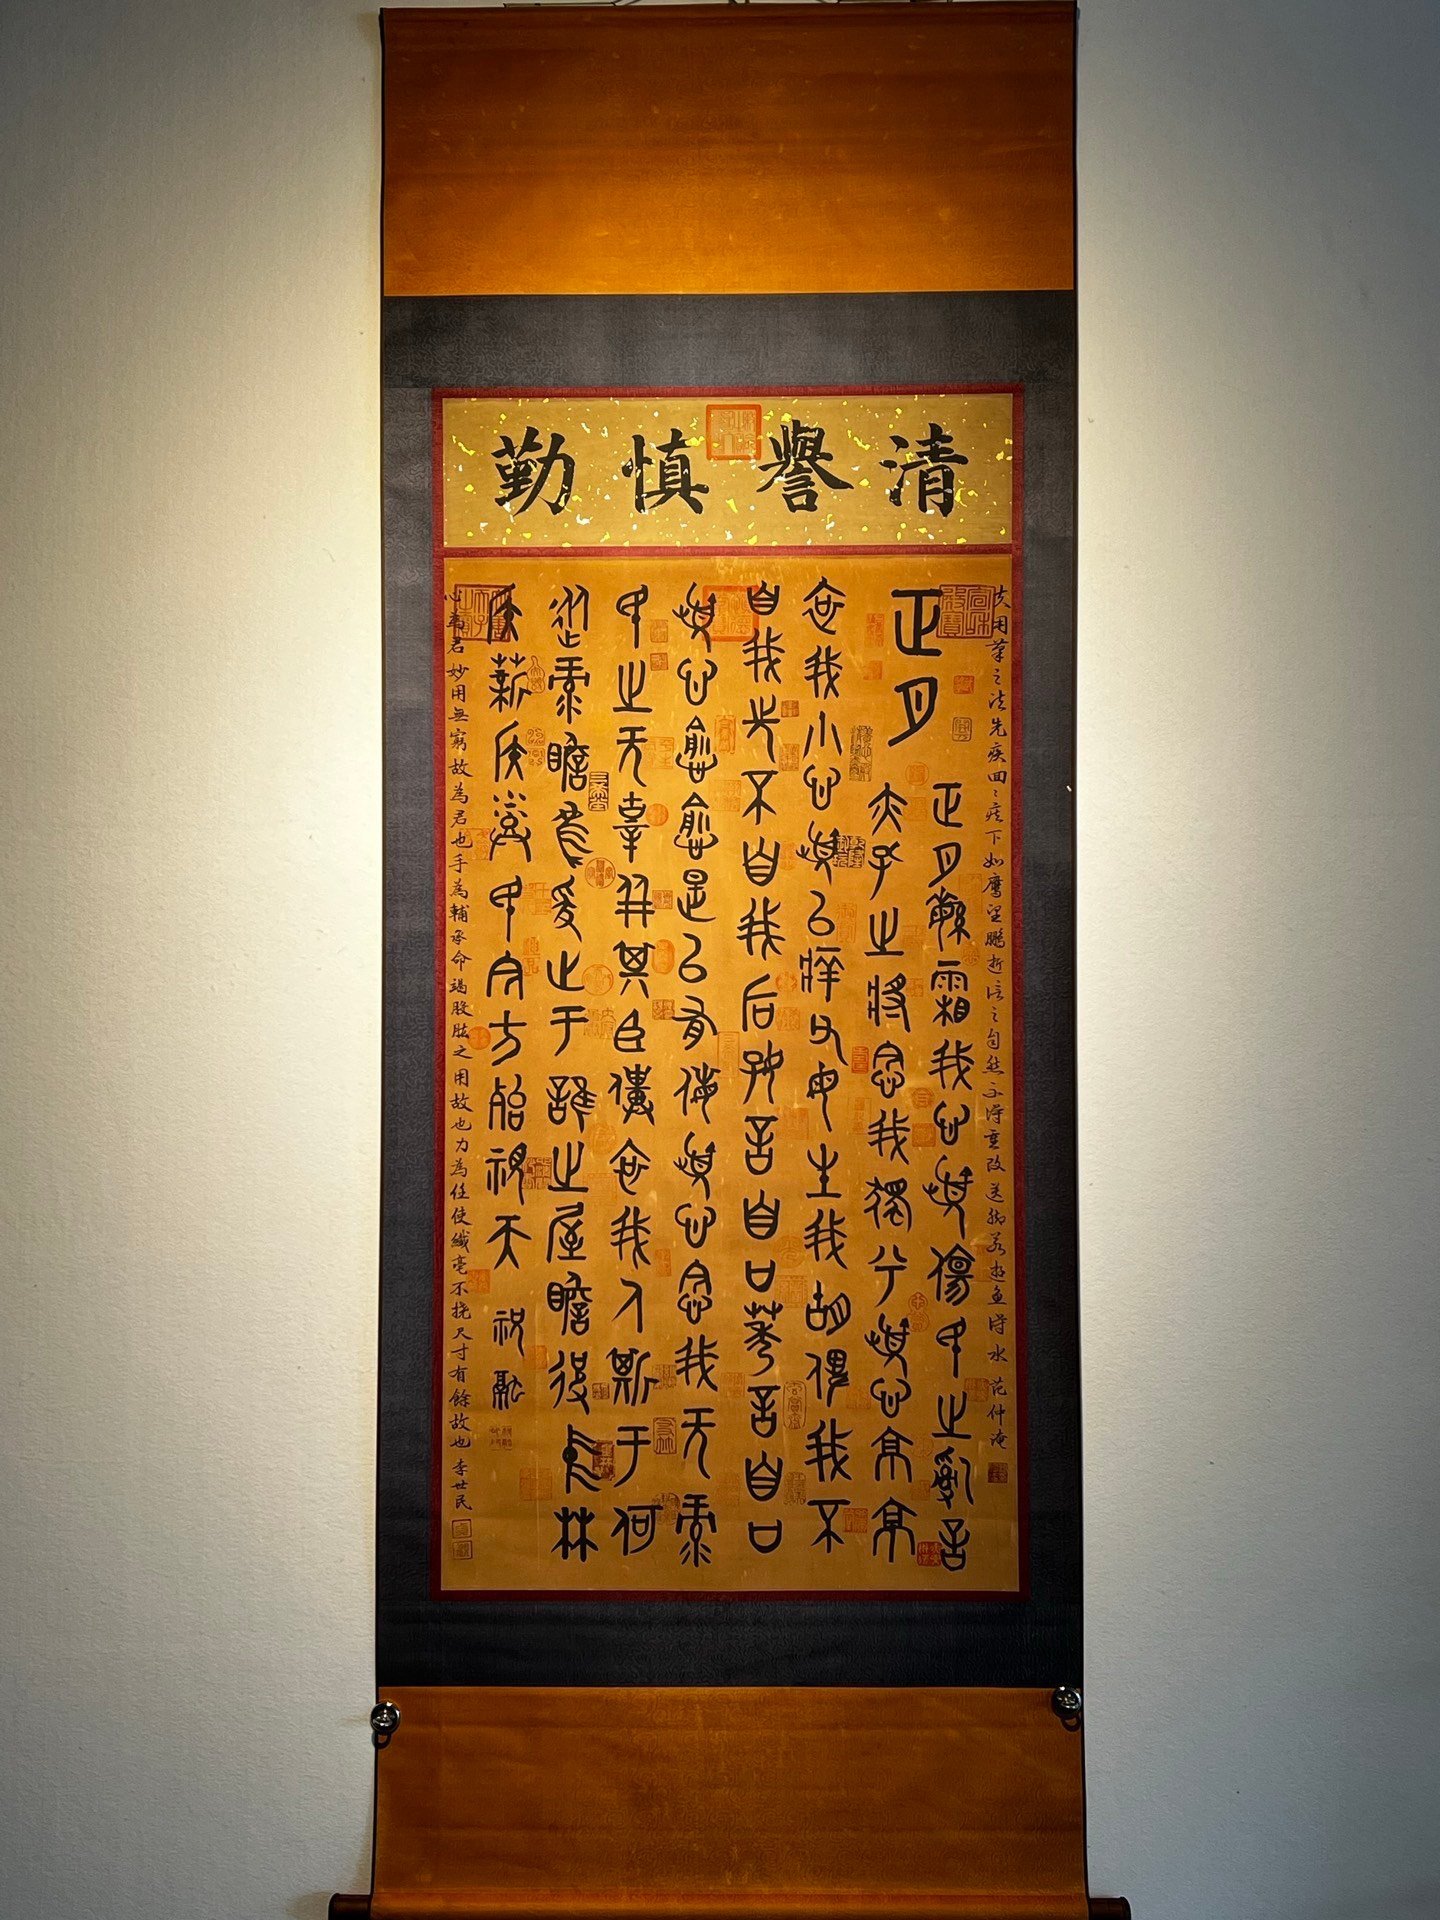 清譽慎勤
夫用筆之法先疾回〻疾下如鷹望鵬逝信之自然不得重改送腳若游魚得水 范仲淹
正月
正月繁霜我心憂傷民之訛言
亦孔之將念我獨兮憂心京京
哀我小心憂以痒父母生我胡俾我不
自我先不自我后好言自口莠言自口
憂心愈愈是以有侮憂心念我无祿
民之无辜并其臣僕哀我人斯于何
從祿瞻烏爰止于誰之屋瞻彼中林
侯薪侯蒸民今方殆視天 祝融
心為君妙用無窮故為君也手為輔承命竭股肱之用故也力為任使纖毫不撓尺寸有餘故也 李世民